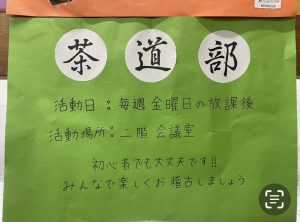 茶道部
活動日：毎週金曜日の放課後
活動場所：二階 会議室
初心者でも大丈夫です!!
みんなで楽しくお稽古しましょう